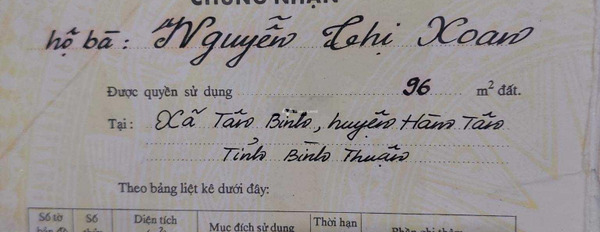 CHỨNG NHẬN
hộ bà : Nguyễn Thị Xoan
Được quyền sử dụng 96 m² đất.
Tại : Xã Tân Bình, huyện Hàm Tân
Tỉnh Bình Thuận
Theo bảng liệt kê dưới đây:
Số tờ Số Diện tích Mục đích sử dụng Thời hạn Phần ghi thêm